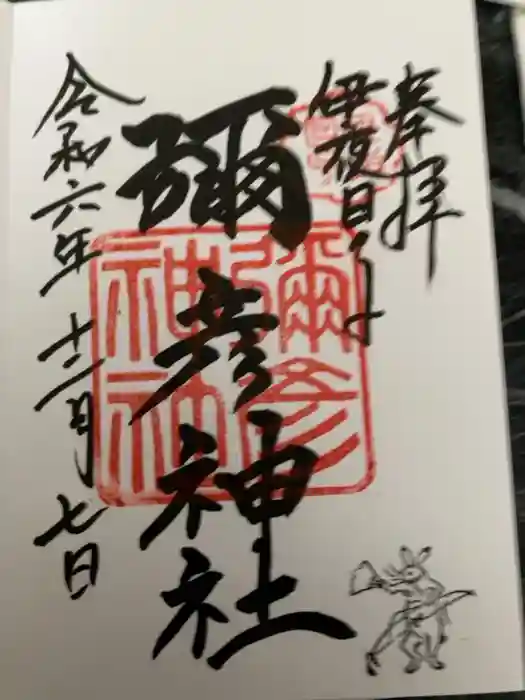 奉拝
伊夜日子
彌彦神社
彌彦
神社
令和六年十二月七日